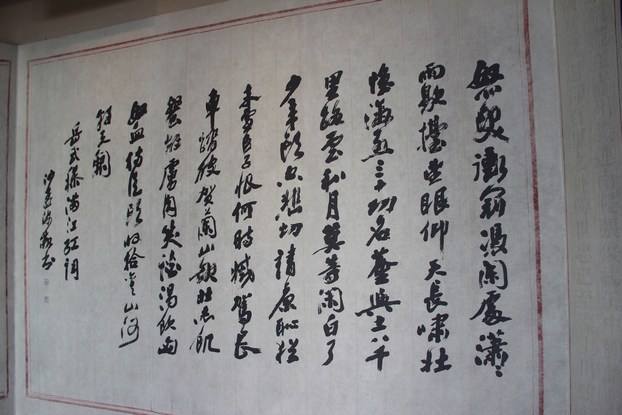 怒髮衝冠憑闌處瀟〻
雨歇擡望眼仰天長嘯壯
懷激烈三十功名塵與土八千
里路雲和月莫等閑白了
少年頭空悲切靖康恥猶
未雪臣子恨何時滅駕長
車踏破賀蘭山缺壯志飢
餐胡虜肉笑談渴飲匈
奴血待從頭收拾舊山河
朝天闕
岳武穆滿江紅詞
沙孟海敬書